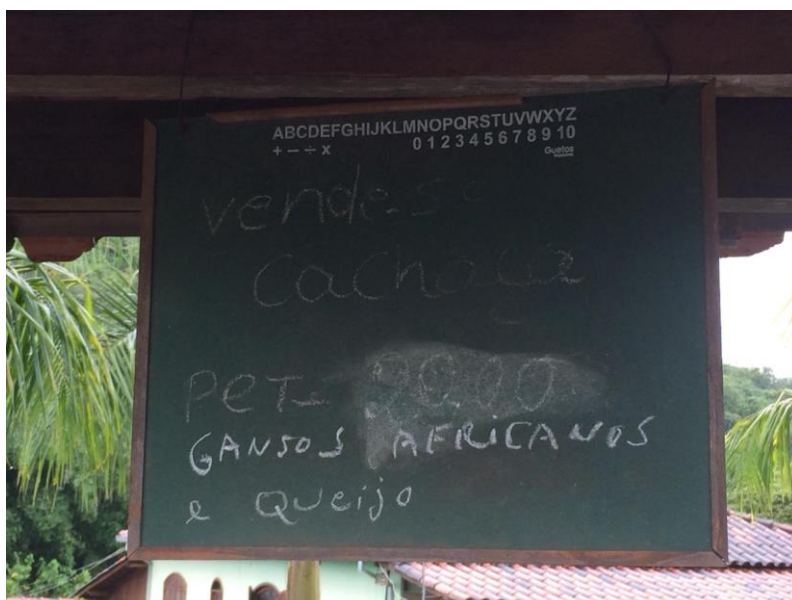 ABCDEFGHIJKLMNOPQRSTUVWXYZ
+ − ÷ x 0 1 2 3 4 5 6 7 8 9 10
Guetos
vende-se
cachaça
PeT-
GANSOS AFRICANOS
e Queijo